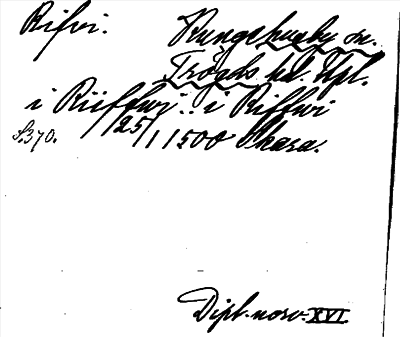 Rifvi. Kungshusby sn.
Trögds hd. Upl.
i Riiffwi.. i Riffwi
S. 370. 25/1 1500 Skara.
Dipl. norv. XVI.